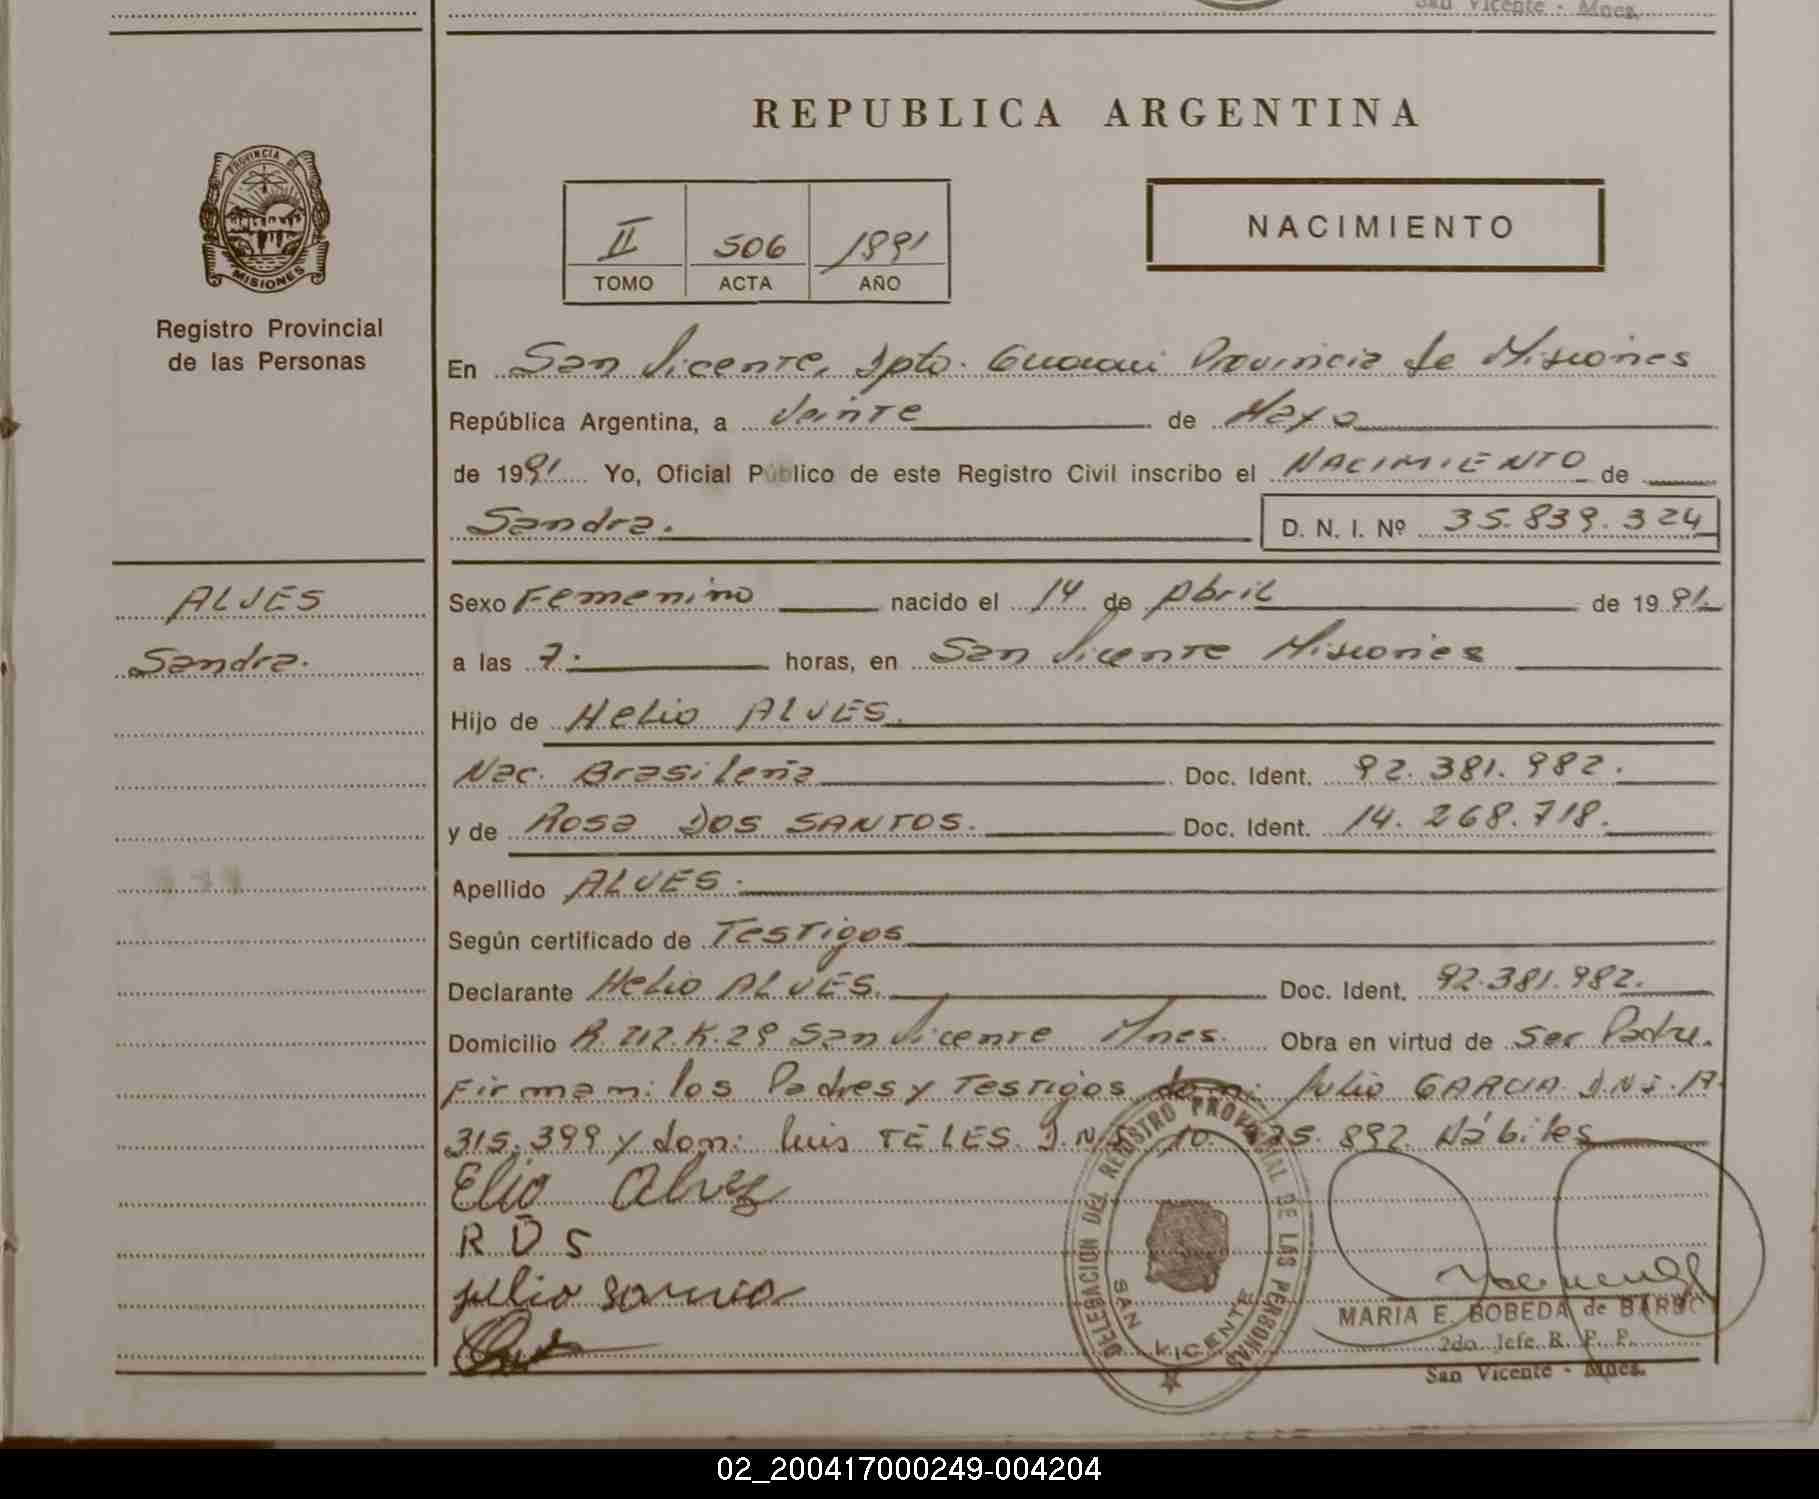 San Vicente - Mnes.
REPUBLICA ARGENTINA
PROVINCIA DE
MISIONES
Registro Provincial
de las Personas
II 506 1891
TOMO ACTA AÑO
NACIMIENTO
En San Vicente, Dpto. Guarani Provincia de Misiones
República Argentina, a Veinte de Mayo
de 1991 Yo, Oficial Público de este Registro Civil inscribo el NACIMIENTO de
Sandra. D. N. I. Nº 35.839.324
ALVES
Sandra.
Sexo Femenino nacido el 14 de Abril de 1991.
a las 7. horas, en San Vicente Misiones
Hijo de Helio ALVES.
Nac. Brasileña Doc. Ident. 92.381.982.
y de Rosa DOS SANTOS. Doc. Ident. 14.268.718.
Apellido ALVES.
Según certificado de Testigos
Declarante Helio ALVES. Doc. Ident. 92.381.982.
Domicilio R. 212. K. 29 San Vicente Mnes. Obra en virtud de Ser Padre.
Firman: los Padres y Testigos don: Julio GARCIA D.N.I. 17.
315.399 y don: Luis TELES. D.N.I. 10. 892. Hábiles
Elio Alvez
R D S
julio Garcia
DELEGACION DEL REGISTRO PROVINCIAL DE LAS PERSONAS
SAN VICENTE
MARIA E. BOBEDA de BARBO
2do. Jefe. R. P. P.
San Vicente - Mnes.
02_200417000249-004204